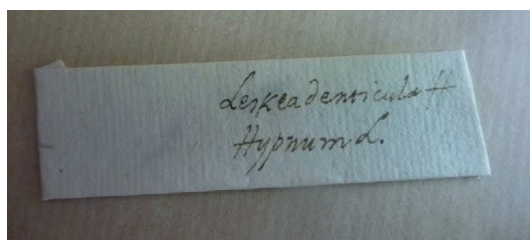 Leskea denticula H
Hypnum L.